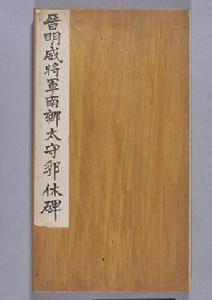 晋明威將軍南鄉太守郛休碑